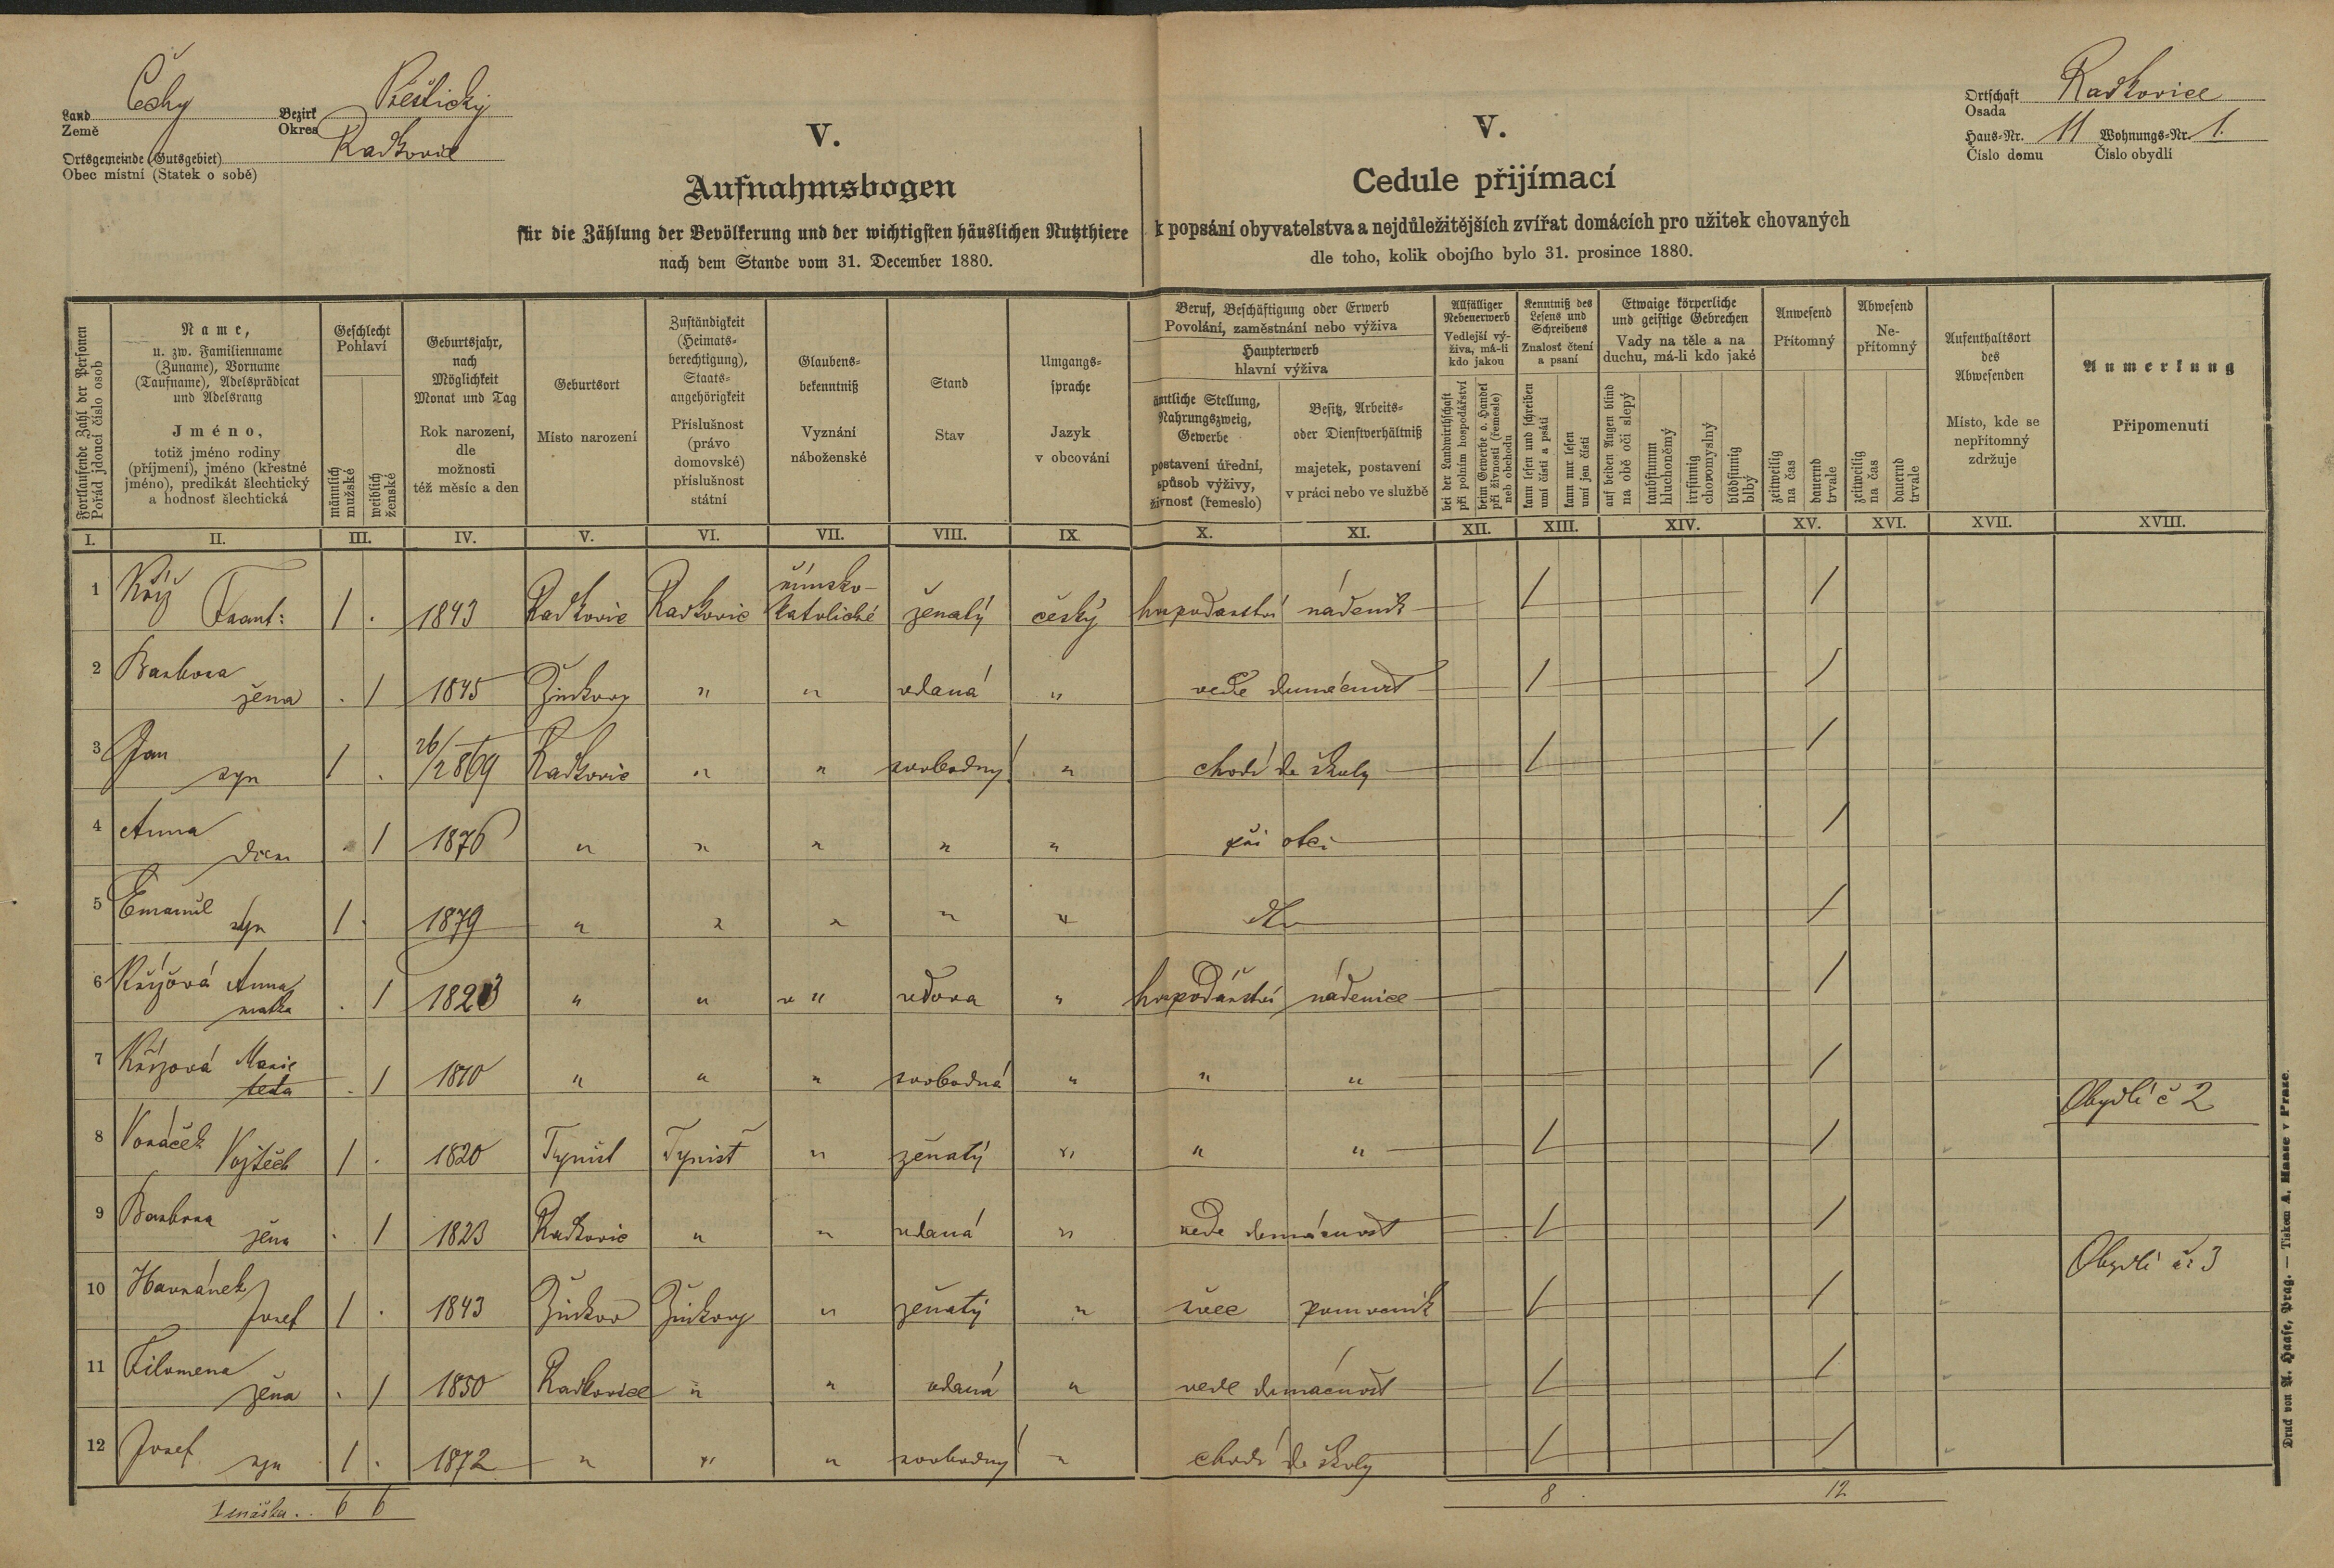 Land Země Čechy
Bezirk Okres Přeštický
Ortsgemeinde (Gutsgebiet) Radkovice
Obec místní (Statek o sobě)
V.
Aufnahmsbogen
für die Zählung der Bevölkerung und der wichtigsten häuslichen Nutzthiere
nach dem Stande vom 31. December 1880.
V.
Cedule přijímací
k popsání obyvatelstva a nejdůležitějších zvířat domácích pro užitek chovaných
dle toho, kolik obojího bylo 31. prosince 1880.
Ortschaft Osada Radkovice
Haus-Nr. 11 Wohnungs-Nr. 1.
Číslo domu Číslo obydlí
Fortlaufende Zahl der Personen
Pořád jdoucí číslo osob
Name,
u. zw. Familienname
(Zuname), Vorname
(Taufname), Adelsprädicat
und Adelsrang
Jméno,
totiž jméno rodiny
(příjmení), jméno (křestné
jméno), predikát šlechtický
a hodnosť šlechtická
Geschlecht
Pohlaví
männlich
mužské
weiblich
ženské
Geburtsjahr,
nach
Möglichkeit
Monat und Tag
Rok narození,
dle
možnosti
též měsíc a den
Geburtsort
Místo narození
Zuständigkeit
(Heimats-
berechtigung),
Staats-
angehörigkeit
Příslušnost
(právo
domovské)
příslušnost
státní
Glaubens-
bekenntniß
Vyznání
náboženské
Stand
Stav
Umgangs-
sprache
Jazyk
v obcování
Beruf, Beschäftigung oder Erwerb
Povolání, zaměstnání nebo výživa
Haupterwerb
hlavní výživa
ämtliche Stellung,
Nahrungszweig,
Gewerbe
postavení úřední,
spůsob výživy,
živnosť (řemeslo)
Besitz, Arbeits-
oder Dienstverhältniß
majetek, postavení
v práci nebo ve službě
Allfälliger
Nebenerwerb
Vedlejší vý-
živa, má-li
kdo jakou
bei der Landwirthschaft
při polním hospodářství
beim Gewerbe o. Handel
při živnosti (řemesle)
neb obchodu
Kenntniß des
Lesens und
Schreibens
Znalosť čtení
a psaní
kann lesen und schreiben
umí čísti a psáti
kann nur lesen
umí jen čísti
Etwaige körperliche
und geistige Gebrechen
Vady na těle a na
duchu, má-li kdo jaké
auf beiden Augen blind
na obě oči slepý
taubstumm
hluchoněmý
irrsinnig
choromyslný
blödsinnig
blbý
Anwesend
Přítomný
zeitweilig
na čas
dauernd
trvale
Abwesend
Ne-
přítomný
zeitweilig
na čas
dauernd
trvale
Aufenthaltsort
des
Abwesenden
Místo, kde se
nepřítomný
zdržuje
Anmerkung
Připomenutí
I. II. III. IV. V. VI. VII. VIII. IX. X. XI. XII. XIII. XIV. XV. XVI. XVII. XVIII.
1 Kříž Frant: 1 . 1843 Radkovic Radkovic římsko-katolické ženatý český hospodářství nádeník / /
2 Barbora žena . 1 1845 Žinkovy " " vdaná " vede domácnosť / /
3 Jan syn 1 . 26/12 869 Radkovic " " svobodný " chodí do školy / /
4 Anna dcera . 1 1876 " " " " " při otci /
5 Emanuel syn 1 . 1879 " " " " " dto /
6 Křížová Anna matka . 1 1823 " " " vdova " hospodářství nádenice /
7 Křížová Marie teta . 1 1810 " " " svobodná " " " /
Obydlí č 2
8 Voráček Vojtěch 1 . 1820 Týnišť Týnišť " ženatý " " " / /
9 Barbora žena . 1 1823 Radkovic " " vdaná " vede domácnosť / /
Obydlí č: 3
10 Havránek Josef 1 . 1843 Žinkov Žinkovy " ženatý " švec pomocník / /
11 Filomena žena . 1 1850 Radkovice " " vdaná " vede domácnosť / /
12 Josef syn 1 . 1872 " " " svobodný " chodí do školy / /
6 6 8 12
Druck von A. Haase, Prag. — Tiskem A. Haase v Praze.